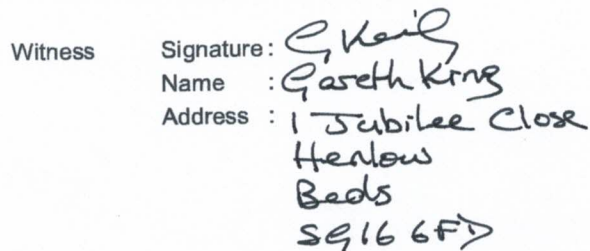 Witness Signature: G King
Name : Gareth King
Address : 1 Jubilee Close
Henlow
Beds
SG16 6FD